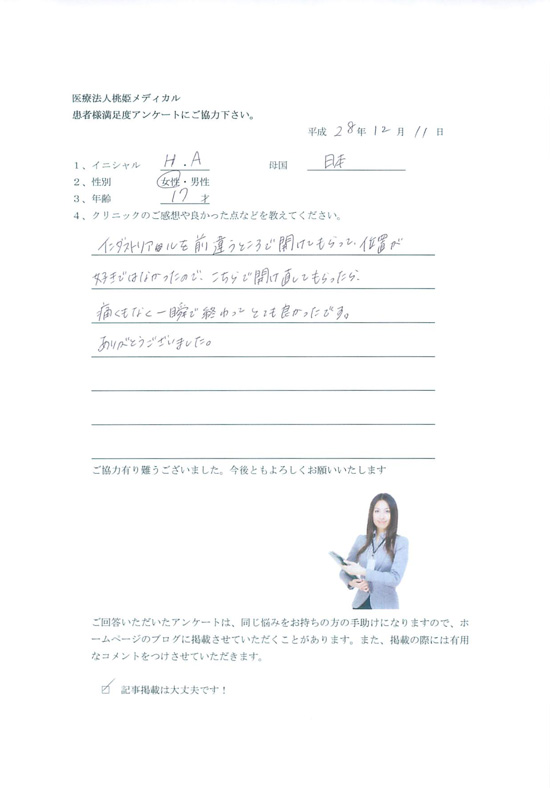 医療法人桃姫メディカル
患者様満足度アンケートにご協力下さい。
平成 28年 12 月 11 日
1、イニシャル H.A 母国 日本
2、性別 女性・男性
3、年齢 17才
4、クリニックのご感想や良かった点などを教えてください。
インダストリアルを前違うところで開けてもらって、位置が
好きではなかったので、こちらで開け直してもらったら、
痛くもなく一瞬で終わってとても良かったです。
ありがとうございました。
ご協力有り難うございました。今後ともよろしくお願いいたします
ご回答いただいたアンケートは、同じ悩みをお持ちの方の手助けになりますので、ホ
ームページのブログに掲載させていただくことがあります。また、掲載の際には有用
なコメントをつけさせていただきます。
☑ 記事掲載は大丈夫です！